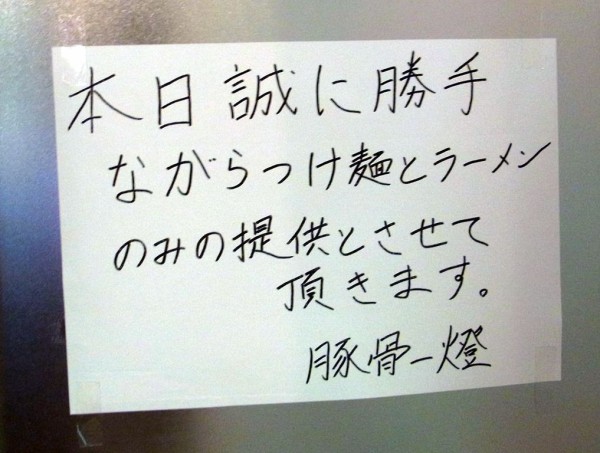 本日誠に勝手
ながらつけ麺とラーメン
のみの提供とさせて
頂きます。
豚骨一燈